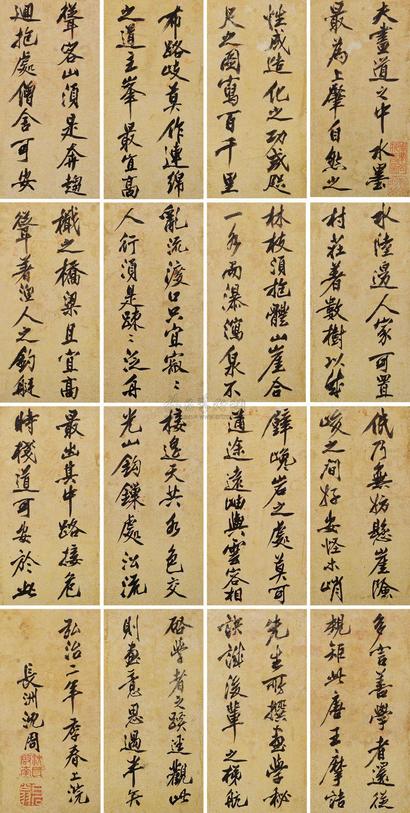 夫畫道之中水墨
最為上肇自然之
性成造化之功或咫
尺之圖寫百千里
布路歧莫作連綿
之道主峯最宜高
聳客山須是奔趨
迴抱處僧舍可安
水陸邊人家可置
村莊著數樹以成
林枝須抱體山崖合
一水而瀑瀉泉不
亂流渡口只宜寂〻
人行須是踈〻泛舟
檝之橋梁且宜高
聳著漁人之釣艇
低乃無妨懸崖險
峻之間好安怪木峭
壁巉岩之處莫可
通途遠岫與雲容相
接遥天共水色交
光山鈎鎖處沿流
最出其中路接危
時棧道可安於此
多言善學者還從
規矩此唐王摩詰
先生所撰畫學秘
訣誠後輩之梯航
啓學者之蹊逕觀此
則畫意思過半矣
弘治二年季春上浣
長洲沈周